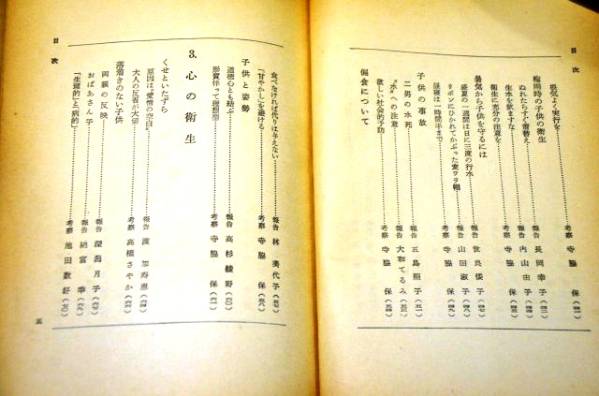 目次
根気よく実行を 考察 寺脇 保
梅雨時の子供の衛生
ぬれたらすぐ着替え 報告 長岡幸子
生水を飲ますな 報告 内山由子
衛生に充分の注意を 考察 寺脇 保
暑気から子供を守るには
盛夏の一週間は日に三度の行水 報告
リボンにひかれてかぶった麦ワラ帽 報告 山田淑子
昼寝は一時間半まで 考察 寺脇 保
子供の事故
二男の水死 報告 五島照子
"水"への注意 報告 大和てるみ
欲しい社会的予防 考察 寺脇 保
偏食について
食べなければ代りは与えない 報告 林 美代子
「甘やかし」を避ける 考察 寺脇 保
子供と姿勢
道徳心とも結ぶ 報告 高杉綾野
形質伴って理想型 考察 寺脇 保
3. 心の衛生
くせといたずら
原因は"愛情の空白" 報告
大人の反省が大切 考察 高橋さやか
落着きのない子供
両親の反映 報告 月子
おばあさん子 報告
「生理的」と「病的」 考察 池田数好
目次
五